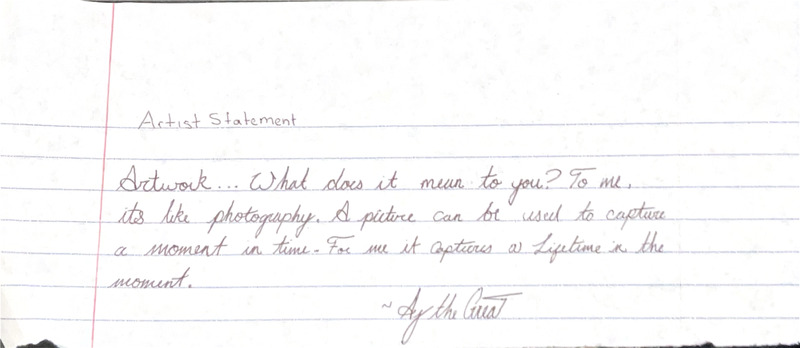 Artist Statement
Artwork... What does it mean to you? To me,
its like photography. A picture can be used to capture
a moment in time. For me it captures a Lifetime in the
moment.
~ Ay the Great